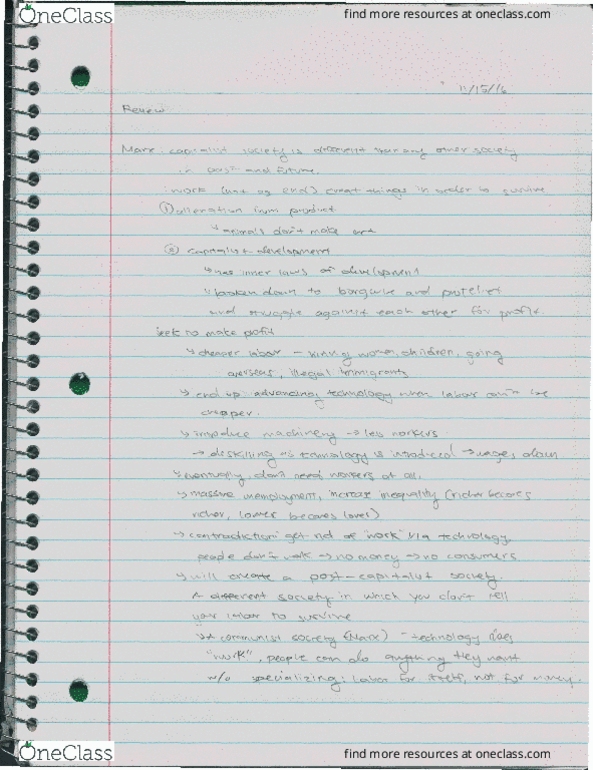 OneClass
find more resources at oneclass.com
11/15/16
Review
Marx: capitalist society is different than any other society
in past and future.
: work (not as end) creat things in order to survive
① alienation from product
↳ animals don't make art
② capitalist development
↳ has inner laws of development
↳ broken down to and
and struggle against each other for profit.
seek to make profit
↳ cheaper labor – women, children, going
overseas, illegal immigrants
↳ end up: advancing technology when labor can't be
cheaper.
↳ introduce machinery → less workers
→ deskilling as technology is introduced → wages down
↳ eventually, don't need workers at all.
↳ massive unemployment, increase inequality (richer becomes
richer, lower becomes lower)
↳ contradiction: get rid of "work" via technology
people don't work → no money → no consumers
↳ will create a post-capitalist society.
A different society in which you don't sell
your labor to survive
↳ A communist society (Marx) – technology does
"work", people can do anything they want
w/o specializing: labor for itself, not for money.
OneClass
find more resources at oneclass.com